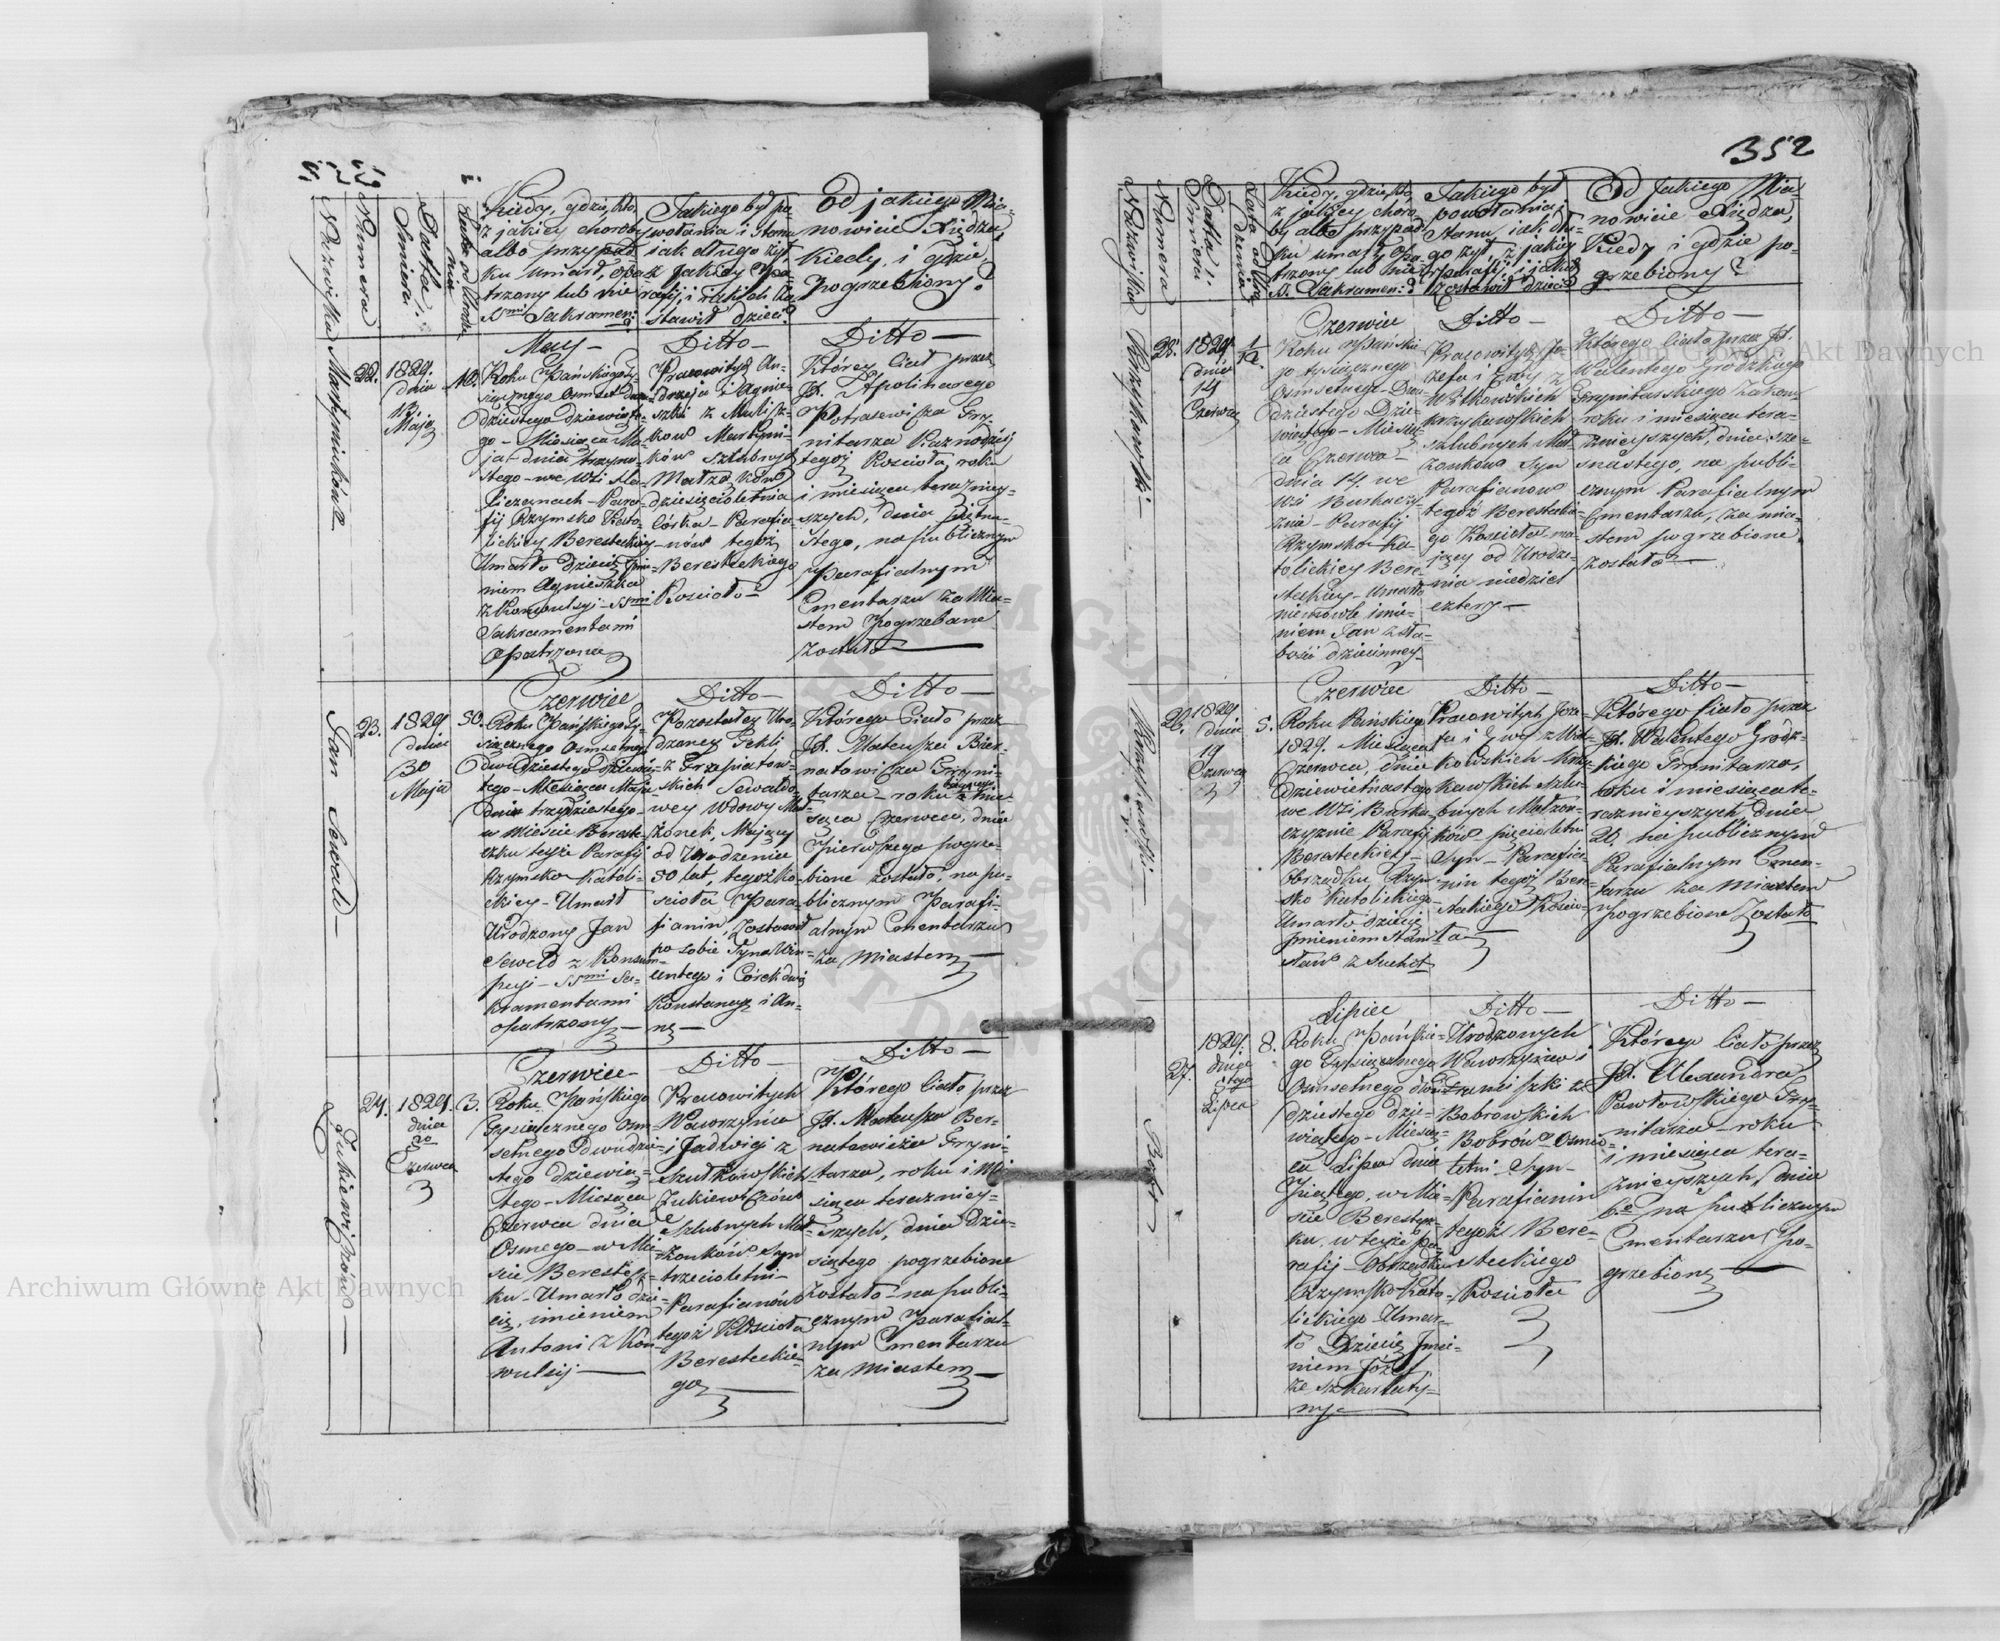 352
Nazwiska
Numera
Datta
Smierci.
Kiedy, gdzie, kto,
z jakiey choroby
albo przypad-
ku umarł, opa-
trzony lub nie
SSmi Sakramen:
Jakiego był po-
wołania i stanu
jak długo żył,
z jakiey Pa-
rafij, i iakich Zo-
stawił dzieci?
Od jakiego Mia-
nowicie Xiędza,
Kiedy, i gdzie,
Pogrzebiony?
Martyniukówna
22.
1829.
dnia
13
Maja
10.
May —
Roku Pańskiego ty-
siącznego Osmset dwu-
dziestego dziewiąte-
go — Miesiąca Ma-
ja dnia trzyna-
stego — we Wsi
Parafij Rzymsko Kato-
lickiey Beresteckiey
Umarło dziecię Imie-
niem Agnieszka
z Konwulsyi — SSmi
Sakramentami
Opatrzona
Ditto —
Pracowitych An-
drzeja i Agnie-
szki z
Martyniu-
ków Szlubnych
Małżonków
dziesięcioletnia
Córka — Parafia-
nów tegoż
Beresteckiego
Kościoła —
Ditto —
Którey Ciało przez
JX. Apolinarego
Potrasewicza Try-
nitarza Kaznodzieię
tegoż Kościoła, roku
i miesiąca teraźniey-
szych, dnia piętna-
stego, na publicznym
Parafialnym
Cmentarzu za Mia-
stem Pogrzebane
Zostało —
Jan Sewald —
23.
1829
dnia
30
Maja
50.
Czerwiec
Roku Pańskiego ty-
siącznego Osmsetnego
dwudziestego dziewią-
tego — Miesiąca Maja
dnia trzydziestego —
w Mieście Bereste-
czku teyże Parafij
Rzymsko Katoli-
ckiey — Umarł
Urodzony Jan
Sewald z Konsum-
pcyi — SSmi Sa-
kramentami
opatrzony —
Ditto —
Pozostałey Uro-
dzoney Tekli
z
skich Sewaldo-
wey Wdowy Mał-
żonek, Maiący
od Urodzenia
50 lat, tegoż Ko-
ścioła Para-
fianin, Zostawił
po sobie Syna Win-
centego i Córek dwie
Konstancyę i An-
nę —
Ditto —
Którego Ciało przez
JX. Mateusza Bier-
natowicza Tryni-
tarza — roku bieżącego Mie-
siąca Czerwca, dnia
Pierwszego pogrze-
bione zostało, na pu-
blicznym Parafi-
alnym Cmentarzu
za miastem —
Żukiewiczów —
24.
1829.
dnia
8o
Czerwca
3.
Czerwiec —
Roku Pańskiego
Tysiącznego Osm-
setnego dwudzie-
stego dziewią-
tego — Miesiąca
Czerwca dnia
Osmego — w Mie-
ście Berestecz-
ku — Umarło dzie-
cię, imieniem
Antoni z Kon-
wulsij —
Ditto —
Pracowitych
Wawrzyńca
i Jadwigi z
Szutkowskich
Żukiewiczów
Szlubnych Mał-
żonków Syn
trzecioletni —
Parafianów
tegoż Kościoła
Beresteckie-
go —
Ditto —
Którego Ciało przez
JX. Mateusza Ber-
natowicza Tryni-
tarza, roku i Mie-
siąca teraźniey-
szych, dnia Dzie-
siątego pogrzebione
Zostało — na publi-
cznym Parafial-
nym Cmentarzu
za miastem —
Nazwiska
Numera
Datta:
Smierci
Lata od Uro-
dzenia
Kiedy, gdzie, kto,
z jakiey choro-
by albo przypad-
ku umarł, Opa-
trzony lub nie
SS. Sakramen:
Jakiego był
powołania,
Stanu, iak dłu-
go żył, z jakiey
Parafij, i jakich
Zostawił dzieci
Od Jakiego Mia-
nowicie Xiędza,
Kiedy i gdzie po-
grzebiony?
Krzykawski —
25.
1829.
dnia
14
Czerwca
Czerwiec
Roku Pańskie-
go tysiącznego
Osmsetnego Dwu-
dziestego Dzie-
wiątego — Miesią-
ca Czerwca —
dnia 14, we
Wsi
Parafij
Rzymsko Ka-
tolickiey Bere-
steckiey — Umarło
niemowle imie-
niem Jan z sła-
bości dziecinney —
Ditto —
Pracowitych Jó-
zefa i Ewy z
Witkowskich
Krzykawskich
szlubnych Mał-
żonków Syn
Parafianów
tegoż Berestecki-
go Kościoła — ma-
jący od Urodze-
nia niedziel
cztery —
Ditto —
Którego Ciało przez JX.
Walentego Grodzkiego
Trynitarskiego Zakonu
roku i miesiąca tera-
źnieyszych, dnia sze-
snastego, na publi-
cznym Parafialnym
Cmentarzu, za mia-
stem pogrzebione
zostało —
Krzykawski —
26.
1829
dnia
19
Czerwca
5.
Czerwiec
Roku Pańskiego
1829. Miesiąca
Czerwca, dnia
Dziewiętnastego
we Wsi
Parafij
Beresteckiey —
Obrządku Rzym-
sko Katolickiego
Umarło dziecię
Imieniem Stani-
sław z Suchot
Ditto —
Pracowitych Józe-
fa i Ewy z Wit-
kowskich Krzy-
kawskich Szlu-
bnych Małżon-
ków pięcioletni
Syn — Parafia-
nin tegoż Bere-
steckiego Kościo-
ła —
Ditto —
Którego Ciało przez
JX. Walentego Grodz-
kiego Trynitarza,
roku i miesiąca te-
raźnieyszych dnia
20. na publicznym
Parafialnym Cmen-
tarzu za Miastem
Pogrzebione Zostało
Bobr —
27.
1829.
dnia
5tego
Lipca
8.
Lipiec
Roku Pańskie-
go Tysiącznego
Osmsetnego dwu-
dziestego dzie-
wiątego — Miesią-
ca Lipca dnia
Piątego, w Mie-
ście Berestecz-
ku, w teyże Pa-
rafij — Obrządku
Rzymsko Kato-
lickiego Umar-
ło Dziecię Imie-
niem Józef
ze szkarlaty-
ny —
Ditto —
Urodzonych
Wawrzyńca i
Franciszki z
Bobrowskich
Bobrów Osmio-
letni Syn —
Parafianin
tegoż Bere-
steckiego
Kościoła
Ditto —
Którego Ciało przez
JX. Alexandra
Pawłowskiego Try-
nitarza — roku
i miesiąca tera-
źnieyszych, dnia
6o na publicznym
Cmentarzu Po-
grzebione —
Archiwum Główne Akt Dawnych
Archiwum Główne Akt Dawnych